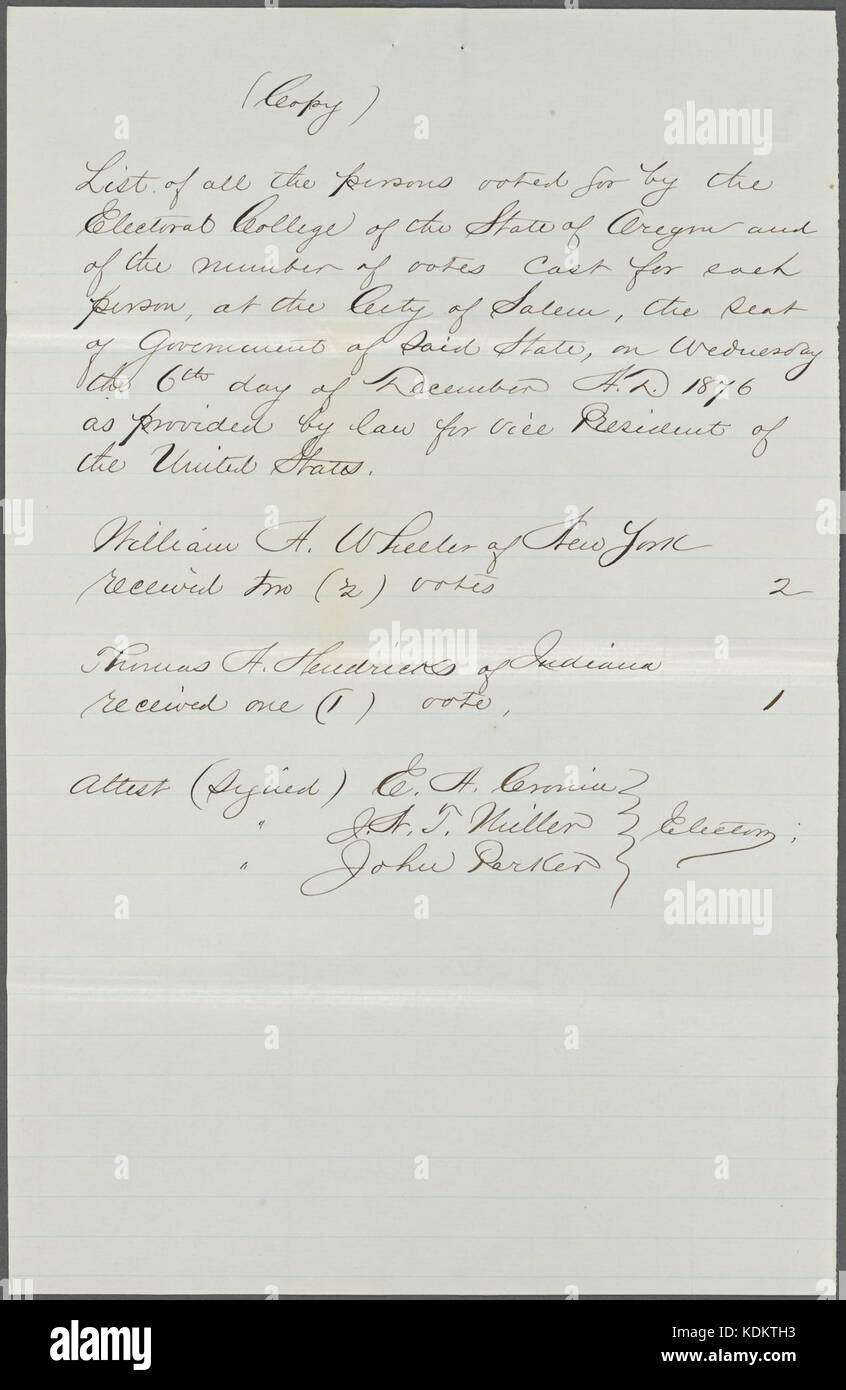 (Copy)
List of all the persons voted for by the
Electoral College of the State of Oregon and
of the number of votes cast for each
person, at the City of Salem, the seat
of Government of said State, on Wednesday
the 6th day of December A.D. 1876
as provided by law for Vice President of
the United States.
William A. Wheeler of New York
received two (2) votes 2
Thomas A. Hendricks of Indiana
received one (1) vote, 1
Attest (Signed) E. A. Cronin
" J. N. T. Miller } Electors;
" John Parker
alamy
alamy
alamy
alamy
Image ID: KDKTH3
www.alamy.com